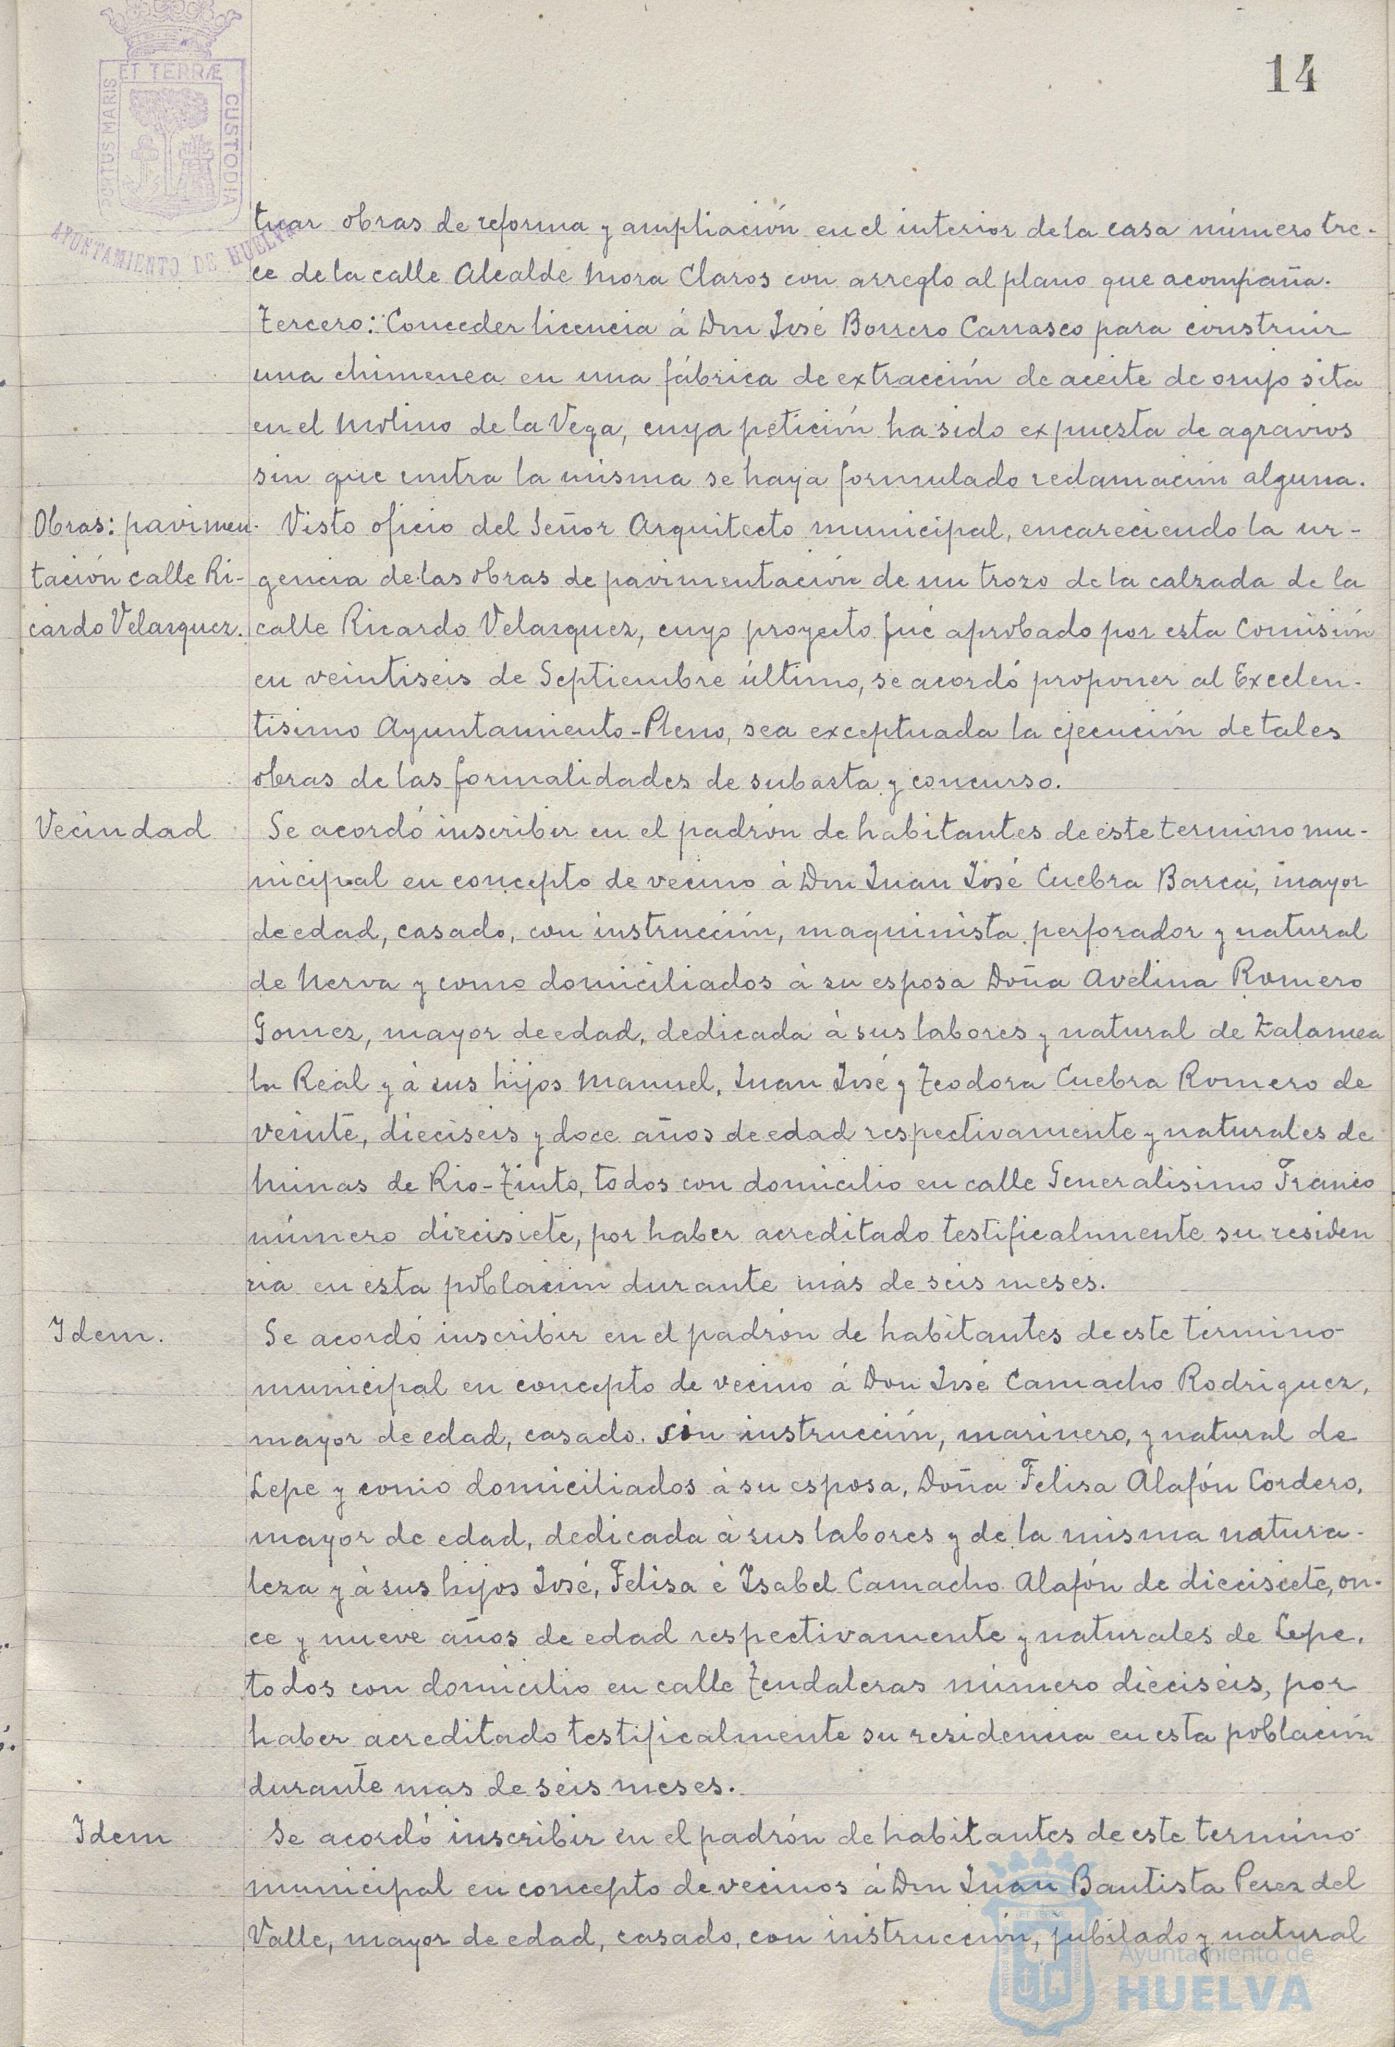 14
PORTUS MARIS ET TERRÆ CUSTODIA
AYUNTAMIENTO DE HUELVA
tuar obras de reforma y ampliación en el interior de la casa número tre-
ce de la calle Alcalde Mora Claros con arreglo al plano que acompaña.
Tercero: Conceder licencia á Don José Borrero Carrasco para construir
una chimenea en una fábrica de extracción de aceite de orujo sita
en el Molino de la Vega, cuya petición ha sido expuesta de agravios
sin que contra la misma se haya formulado reclamación alguna.
Obras: pavimen-
tación calle Ri-
cardo Velazquez.
Visto oficio del Señor Arquitecto municipal, encareciendo la ur-
gencia de las obras de pavimentación de un trozo de la calzada de la
calle Ricardo Velazquez, cuyo proyecto fué aprobado por esta Comisión
en veintiseis de Septiembre último, se acordó proponer al Excelen-
tisimo Ayuntamiento-Pleno, sea exceptuada la ejecución de tales
obras de las formalidades de subasta y concurso.
Vecindad
Se acordó inscribir en el padrón de habitantes de este termino mu-
nicipal en concepto de vecino á Don Juan José Cuebra Barea, mayor
de edad, casado, con instrucción, maquinista perforador y natural
de Nerva y como domiciliados á su esposa Doña Avelina Romero
Gomez, mayor de edad, dedicada á sus labores y natural de Zalamea
la Real y á sus hijos Manuel, Juan José y Teodora Cuebra Romero de
veinte, dieciseis y doce años de edad respectivamente y naturales de
Minas de Rio-Tinto, todos con domicilio en calle Generalisimo Franco
número diecisiete, por haber acreditado testificalmente su residen
cia en esta población durante más de seis meses.
Idem.
Se acordó inscribir en el padrón de habitantes de este término
municipal en concepto de vecino á Don José Camacho Rodriguez,
mayor de edad, casado. sin instrucción, marinero, y natural de
Lepe y como domiciliados á su esposa, Doña Felisa Alafón Cordero,
mayor de edad, dedicada á sus labores y de la misma natura-
leza y á sus hijos José, Felisa é Isabel Camacho Alafón de diecisiete, on-
ce y nueve años de edad respectivamente y naturales de Lepe,
todos con domicilio en calle Tendaleras número dieciseis, por
haber acreditado testificalmente su residencia en esta población
durante mas de seis meses.
Idem
Se acordó inscribir en el padrón de habitantes de este termino
municipal en concepto de vecinos á Don Juan Bautista Perez del
Valle, mayor de edad, casado, con instrucción, jubilado y natural
Ayuntamiento de
HUELVA